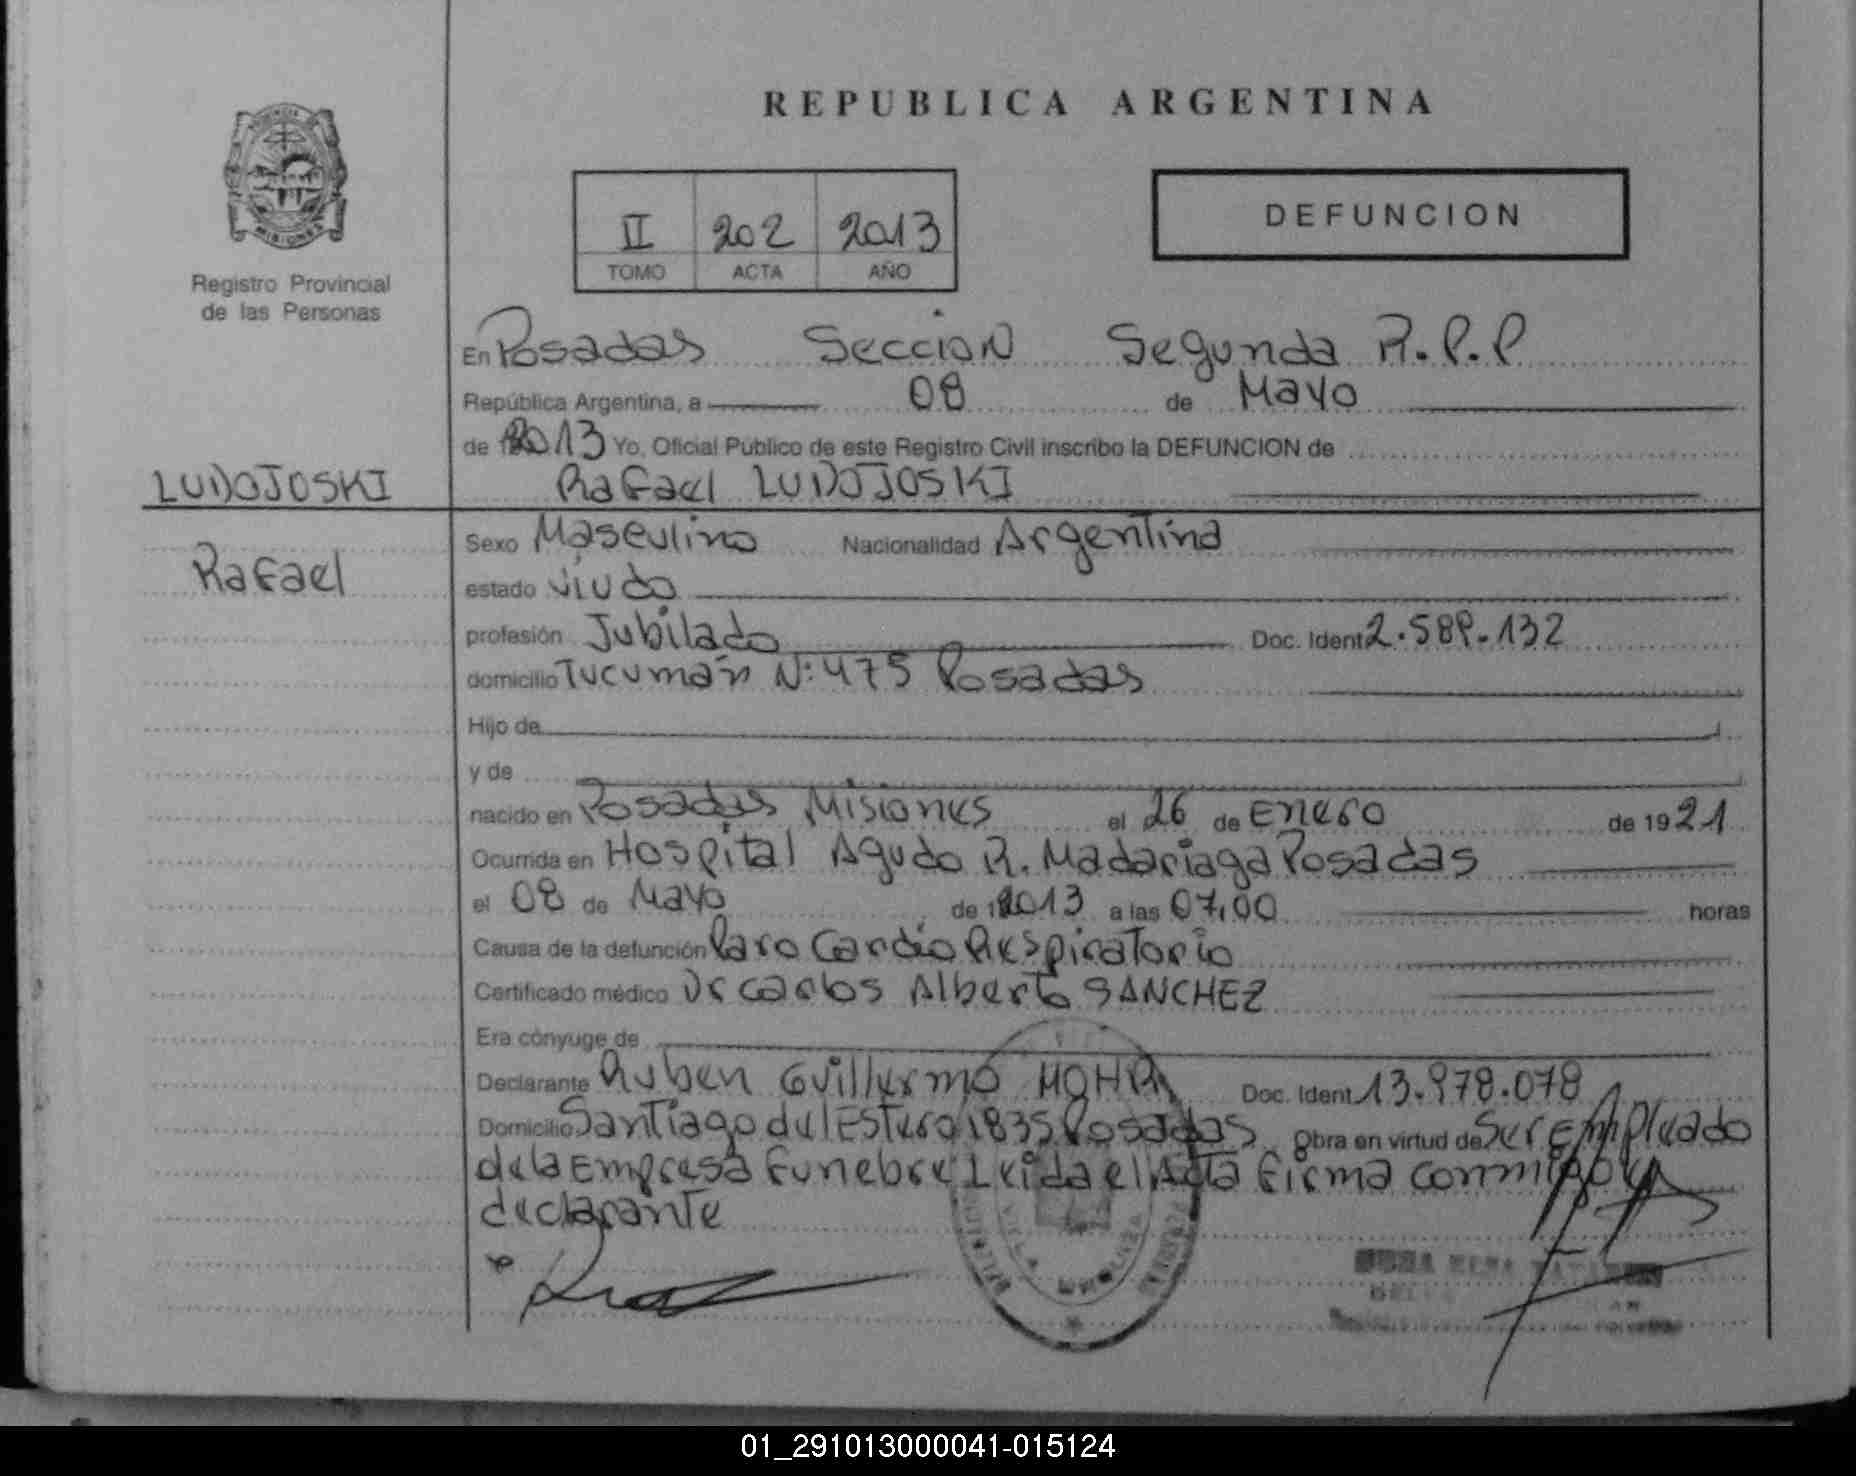 REPUBLICA ARGENTINA
MISIONES
Registro Provincial
de las Personas
II 202 2013
TOMO ACTA AÑO
DEFUNCION
En Posadas Sección Segunda R.P.P
República Argentina, a 08 de Mayo
de 2013 Yo, Oficial Público de este Registro Civil inscribo la DEFUNCION de
LUDOJOSKI
Rafael LUDOJOSKI
Rafael
Sexo Masculino Nacionalidad Argentina
estado viudo
profesión Jubilado Doc. Ident 2.589.132
domicilio Tucumán N: 475 Posadas
Hijo de
y de
nacido en Posadas Misiones el 26 de Enero de 1921
Ocurrida en Hospital Agudo R. Madariaga Posadas
el 08 de Mayo de 2013 a las 07,00 horas
Causa de la defunción Paro Cardio Respiratorio
Certificado médico Dr Carlos Alberto SANCHEZ
Era cónyuge de
Declarante Ruben Guillermo MOHR Doc. Ident 13.978.078
Domicilio Santiago del Estero 1835 Posadas Obra en virtud de Ser Empleado
de la Empresa Funebre Leida el Acta Firma conmigo el
declarante
01_291013000041-015124